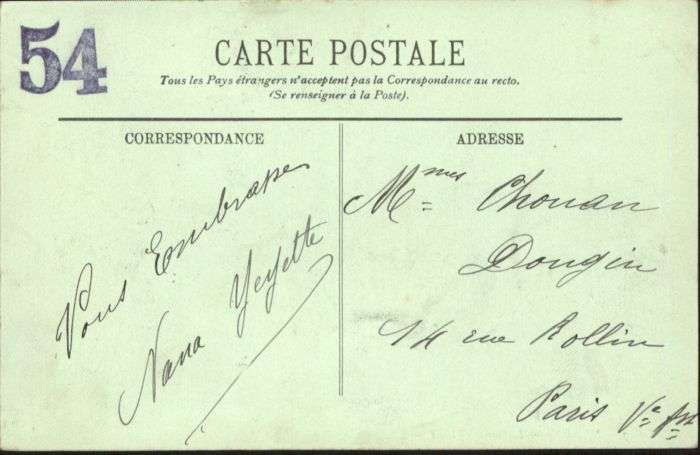 54
CARTE POSTALE
Tous les Pays étrangers n'acceptent pas la Correspondance au recto.
(Se renseigner à la Poste).
CORRESPONDANCE
Vous Embrasse
Nana Yeyette
ADRESSE
Mmes Chouan
Dougin
14 rue Rollin
Paris Ve Arr